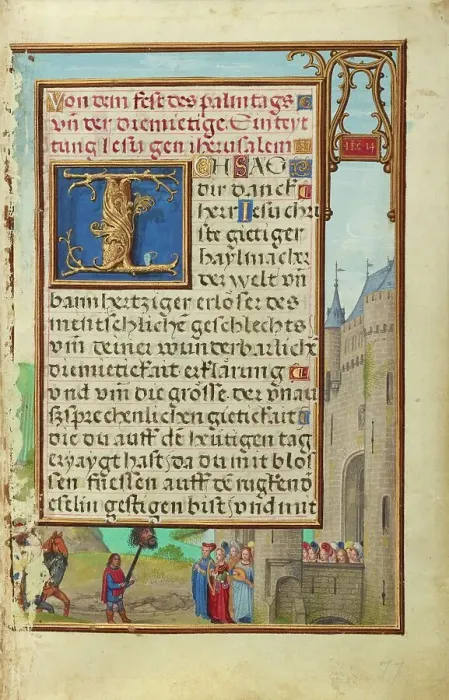 Von dem fest des palmtags
vn̄ der diemietige. Einreyt
tung Iesu gen iherusalem
ICH SAG
dir danck
herr Iesu chri
ste gietiger
haylmacher
der welt vn̄
barmhertziger erloser des
menntschlichē geschlechts
vm̄ deiner wunderbarlichē
diemietickait erklärung
vnd vm̄ die grösse. der vnau
szsprechenlichen gietickait
die du auff dē heutigen tag
erzaygt hast, da du mit blos
sen fuessen auff dē rugkēn d̄
eselin gestigen bist, vnd mit